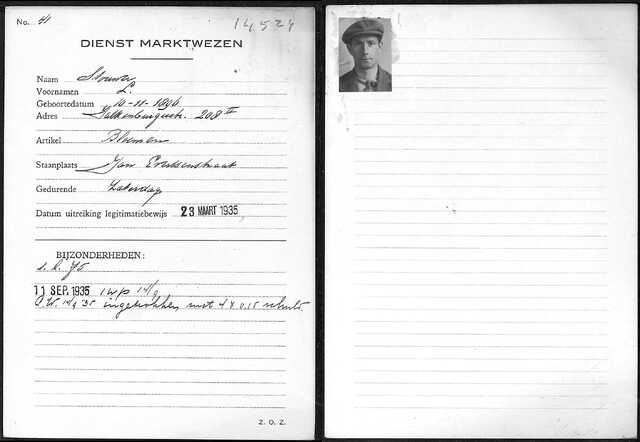 No. 41
14524
DIENST MARKTWEZEN
Naam
Voornamen L.
Geboortedatum 10-11-1896
Adres Valkenburgerstr. 208 II
Artikel Bloemen
Staanplaats Jan Evertsenstraat
Gedurende Zaterdag
Datum uitreiking legitimatiebewijs 23 MAART 1935
BIJZONDERHEDEN:
11 SEP. 1935
ingetrokken
Z. O. Z.